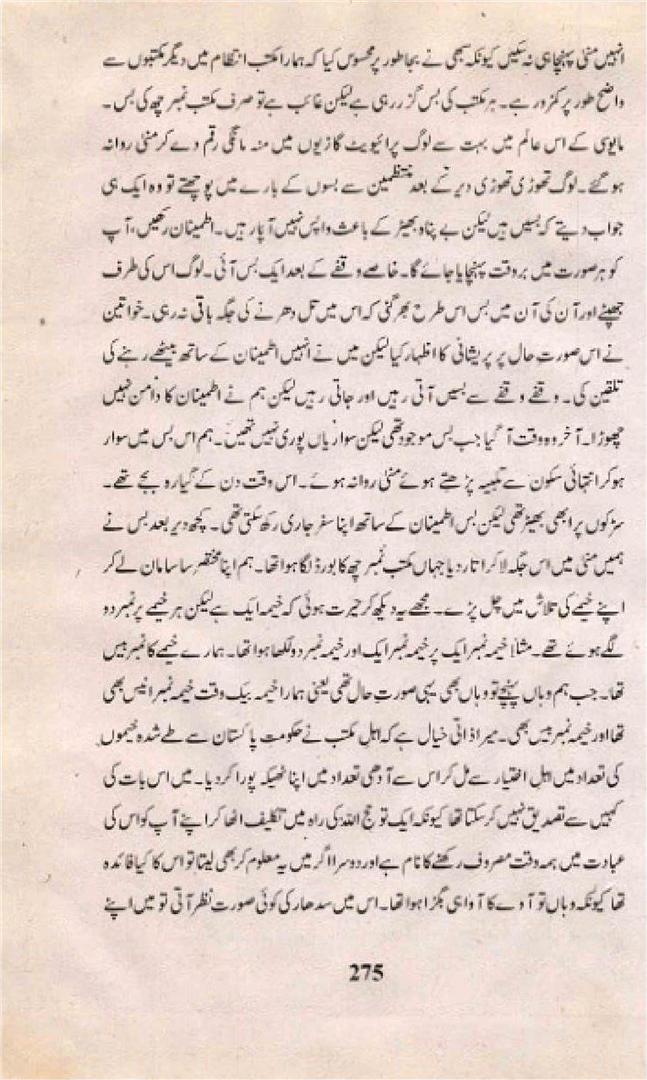 انہیں منیٰ پہنچا ہی نہ سکیں کیونکہ سبھی نے بجا طور پر محسوس کیا کہ ہمارا مکتب انتظام میں دیگر مکتبوں سے
واضح طور پر کمزور ہے۔ ہر مکتب کی بس گزر رہی ہے لیکن غائب ہے تو صرف مکتب نمبر چھ کی بس۔
مایوسی کے اس عالم میں بہت سے لوگ پرائیویٹ گاڑیوں میں منہ مانگی رقم دے کر منیٰ روانہ
ہو گئے۔ لوگ تھوڑی تھوڑی دیر کے بعد منتظمین سے بسوں کے بارے میں پوچھتے تو وہ ایک ہی
جواب دیتے کہ بسیں ہیں لیکن بے پناہ بھیڑ کے باعث واپس نہیں آ پا رہیں۔ اطمینان رکھیں، آپ
کو ہر صورت میں بروقت پہنچایا جائے گا۔ خاصے وقفے کے بعد ایک بس آئی۔ لوگ اس کی طرف
جھپٹے اور آن کی آن میں بس اس طرح بھر گئی کہ اس میں تل دھرنے کی جگہ باقی نہ رہی۔ خواتین
نے اس صورتِ حال پر پریشانی کا اظہار کیا لیکن میں نے انہیں اطمینان کے ساتھ بیٹھے رہنے کی
تلقین کی۔ وقفے وقفے سے بسیں آتی رہیں اور جاتی رہیں لیکن ہم نے اطمینان کا دامن نہیں
چھوڑا۔ آخر وہ وقت آ گیا جب بس موجود تھی لیکن سواریاں پوری نہیں تھیں۔ ہم اس بس میں سوار
ہو کر انتہائی سکون سے تلبیہ پڑھتے ہوئے منیٰ روانہ ہوئے۔ اس وقت دن کے گیارہ بجے تھے۔
سڑکوں پر ابھی بھیڑ تھی لیکن بس اطمینان کے ساتھ اپنا سفر جاری رکھ سکتی تھی۔ کچھ دیر بعد بس نے
ہمیں منیٰ میں اس جگہ لا کر اتار دیا جہاں مکتب نمبر چھ کا بورڈ لگا ہوا تھا۔ ہم اپنا مختصر سا سامان لے کر
اپنے خیمے کی تلاش میں چل پڑے۔ مجھے یہ دیکھ کر حیرت ہوئی کہ خیمہ ایک ہے لیکن ہر خیمے پر نمبر دو
لگے ہوئے تھے۔ مثلاً خیمہ نمبر ایک پر خیمہ نمبر ایک اور خیمہ نمبر دو لکھا ہوا تھا۔ ہمارے خیمے کا نمبر بیس
تھا۔ جب ہم وہاں پہنچے تو وہاں بھی یہی صورتِ حال تھی یعنی ہمارا خیمہ بیک وقت خیمہ نمبر انیس بھی
تھا اور خیمہ نمبر بیس بھی۔ میرا ذاتی خیال ہے کہ اہلِ مکتب نے حکومت پاکستان سے طے شدہ خیموں
کی تعداد میں اہلِ اختیار سے مل کر اس سے آدھی تعداد میں اپنا ٹھیکہ پورا کر دیا۔ میں اس بات کی
کہیں سے تصدیق نہیں کر سکتا تھا کیونکہ ایک تو حج اللہ کی راہ میں تکلیف اٹھا کر اپنے آپ کو اس کی
عبادت میں ہمہ وقت مصروف رکھنے کا نام ہے اور دوسرا اگر میں یہ معلوم کر بھی لیتا تو اس کا کیا فائدہ
تھا کیونکہ وہاں تو آوے کا آوا ہی بگڑا ہوا تھا۔ اس میں سدھار کی کوئی صورت نظر آتی تو میں اپنے
275